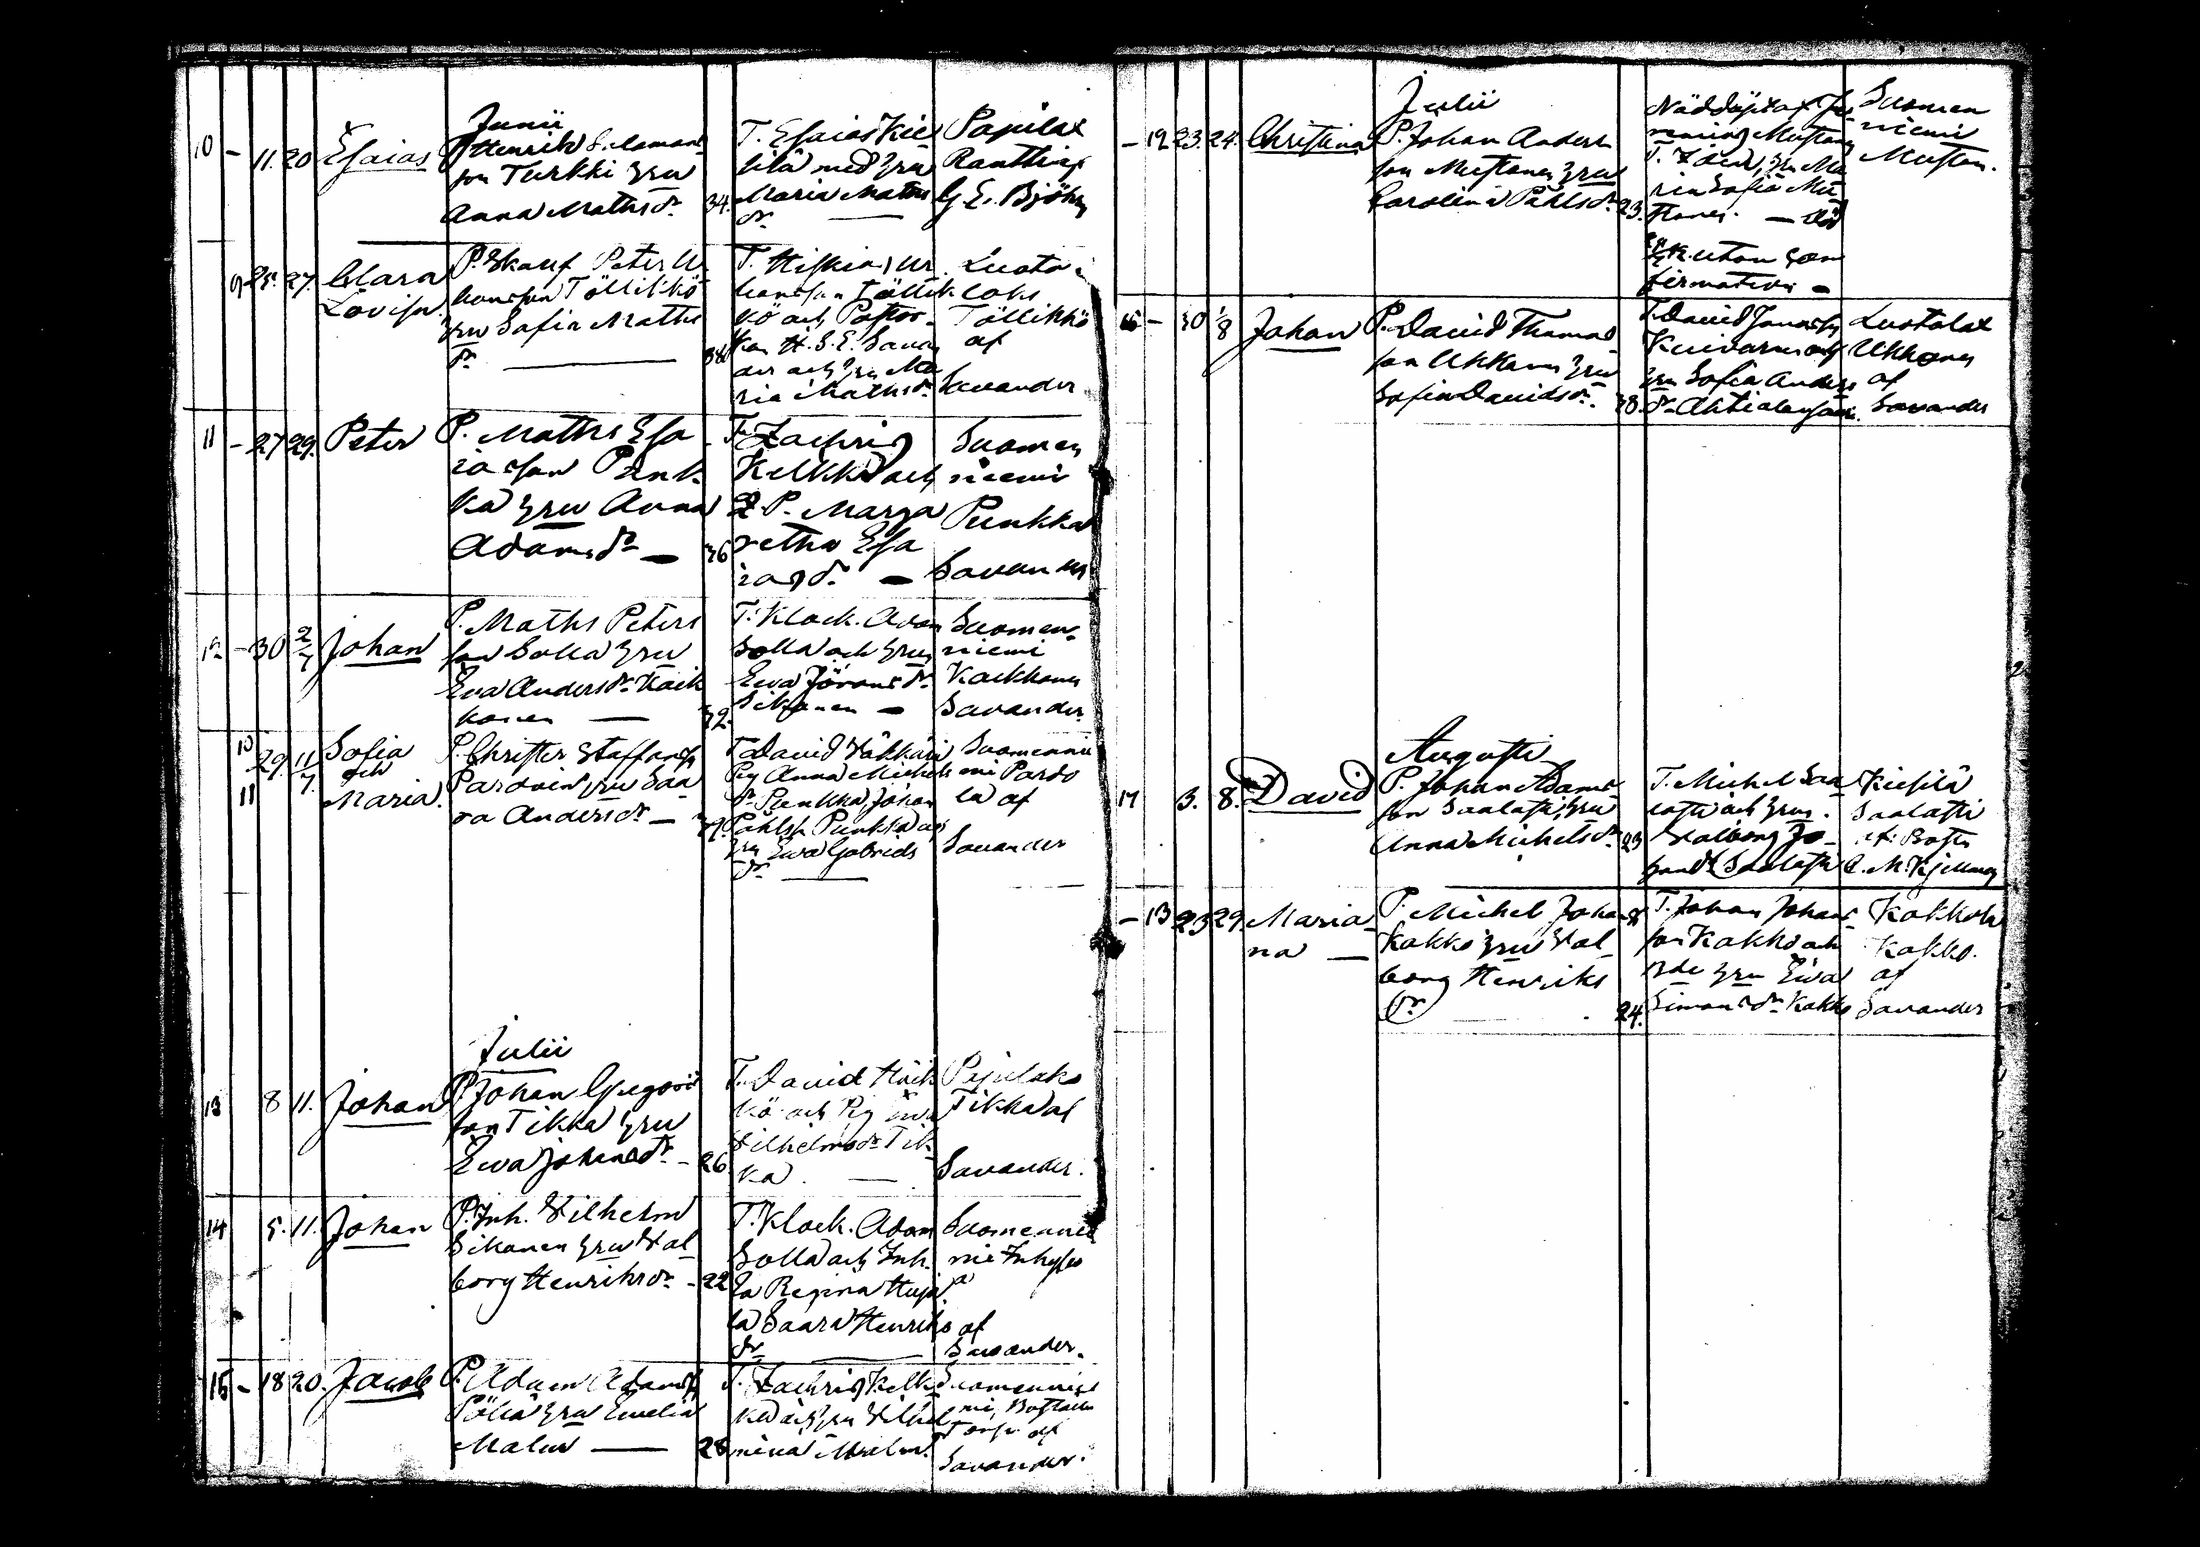 Junii
10 - 11. 20 Esaias Henrik Salamons
son Turkki hru
Anna Mathsdr 34.
T. Esaias Kie
silä med hru
Maria Maths
dr
Pajulax
Ranttinen
G. E. Björkm
9 25. 27. Clara
Lovisa
P. Skattf Peter Ur
bansson Töllikkö
hru Sofia Maths
dr 38
T. Hiskias Ur
bansson Töllik
kö och Pastor
skan H. S. E. Savan
der och hru Ma
ria Mathsdr
Luota
laks
Töllikkö
af
Savander
11 - 27 29. Peter
P. Maths Esa
iasson Punk
ka hru Anna
Adamsdr 36
T. Zachris
Kelkka och
P. Marga
retha Esa
iasdr
Suomen
niemi
Punkka
Savander
12 - 30 2/7 Johan
P. Maths Peters
son Solla hru
Eva Andersdr Kaik
konen 32.
T. Klock. Adam
Solla och hru
Eva Göransdr
Sikanen
Suomen
niemi
Kaikkonen
Savander.
10
11 29. 11/7. Sofia
och
Maria.
P. Christer Staffanss
Pardoin hru Saa
ra Andersdr
T. David Väkkäri
Pig Anna Michels
dr Punkka, Johan
Påhlss. Punkka och
hru Ewa Gabriels
dr
Suomennie
mi Pardo
la af
Savander
Julii
13 8 11. Johan
P. Johan Gregoris
son Tikka hru
Ewa Johansdr - 26
T. David Häik
kö och Pig Ewa
Vilhelmsdr Tik
ka
Pajulaks
Tikka af
Savander.
14 5. 11. Johan
P. Inh. Vilhelm
Sikanen hru Val
borg Henriksdr - 22
T. Klock. Adam
Solla och Inh.
Regina
Saara Henriks
dr
Suomennie
mi Inhyses
af
Savander.
15 - 18 20. Jacob
P. Adam Adamss
Pöljä hru Emelia
Malm 28
T. Zachris Kelk
ka och hru Vilhel
mina Malm
Suomennie
mi, Bostalls
Torp af
Savander.
Julii
- 12 23. 24. Christina
P. Johan Anders
son Mustonen hru
Carolina Påhlsdr 23.
Nöddöpt af
Mustonen
T. Idem, hru Ma
ria Sofia Mu
stonen. - död
utan con
firmation -
Suomen
niemi
Muston.
16 - 30 1/8 Johan
P. David Thomas
son Ukkonen hru
Sofia Davidsdr. 38.
T. David Jonass
Kuivanen och
hru Sofia Anders
dr Ahtialansaari.
Luotolax
Ukkonen
af
Savander
Augusti
17 3. 8. David
P. Johan Adams
son Saalasti, hru
Anna Michelsdr 23
T. Michel Saa
lasti och hru
Valborg Jo
hansdr Saalasti
Kiesilä
Saalasti
af Past.
C. M. Kjellman
- 13 23 29. Maria
na
P. Michel Johanss
Kakko hru Val
borg Henriks
dr 24.
T. Johan Johans
son Kakko och
dde hru Ewa
Simonsdr Kakko
Kakkola
Kakko.
af
Savander